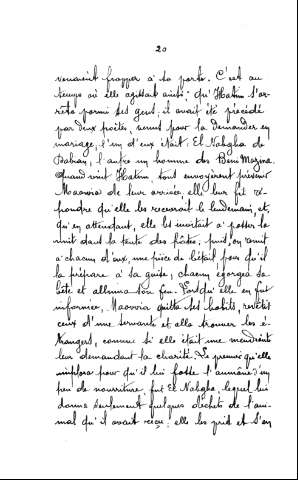 20
venaient frapper à sa porte. C'est au
temps où elle agissait ainsi, qu'Hatim s'ar-
rêta parmi ses gens; il avait été précédé
par deux poètes, venus pour la demander en
mariage, l'un d'eux était El Nabgha de
l'autre un homme des Béni
Quand vint Hatim tous envoyèrent prévenir
Maowia de leur arrivée, elle leur fit ré-
pondre qu'elle les recevrait le lendemain, et,
qu'en attendant, elle les invitait à passer la
nuit dans la tente des poètes, puis, on remit
à chacun d'eux, une pièce de bétail pour qu'il
la prépare à sa guise; chacun égorgea sa
bête et alluma son feu. Lorsqu'elle en fut
informée, Maowia quitta ses habits, revêtit
ceux d'une servante et alla trouver les é-
trangers, comme si elle était une mendiante
leur demandant la charité. Le premier qu'elle
implora pour qu'il lui fasse l'aumône d'un
peu de nourriture fut El Nabgha, lequel lui
donna seulement quelques déchets de l'ani-
mal qu'il avait reçu; elle les prit et s'en